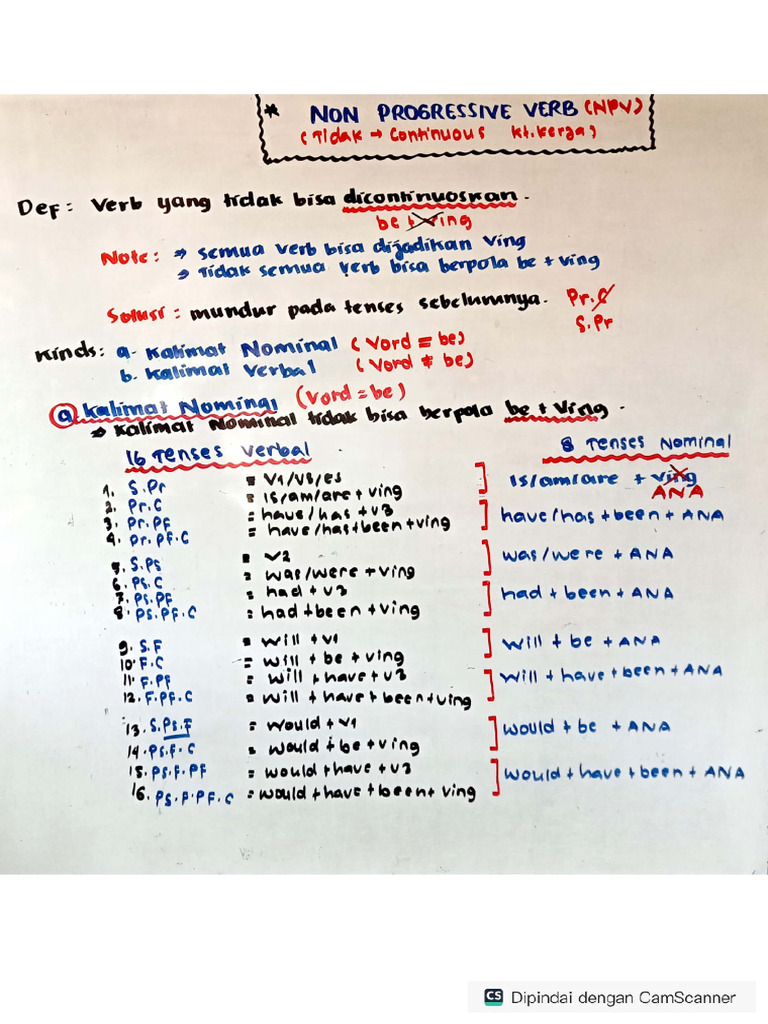 * NON PROGRESSIVE VERB (NPV)
(Tidak → Continuous kt.kerja)
Def: Verb yang tidak bisa dicontinuoskan.
be + Ving
Note: → semua verb bisa dijadikan Ving
→ Tidak semua verb bisa berpola be + Ving
Solusi: mundur pada tenses sebelumnya. Pr.C
S.Pr
Kinds: a. Kalimat Nominal (Vord = be)
b. Kalimat Verbal (Vord ≠ be)
a Kalimat Nominal (Vord = be)
→ Kalimat Nominal tidak bisa berpola be + Ving.
16 Tenses Verbal
8 Tenses Nominal
1. S.Pr = V1/Vs/es
2. Pr.C = is/am/are + ving
is/am/are + ving
ANA
3. Pr.PF = have/has + v3
4. Pr.PF.C = have/has+been+ving
have/has + been + ANA
5. S.Ps = v2
6. Ps.C = was/were + ving
was/were + ANA
7. Ps.PF = had + v3
8. Ps.PF.C = had + been + ving
had + been + ANA
9. S.F = will + v1
10. F.C = will + be + ving
will + be + ANA
11. F.PF = will + have + v3
12. F.PF.C = will + have + been + ving
will + have + been + ANA
13. S.Ps.F = would + v1
14. Ps.F.C = would + be + ving
would + be + ANA
15. Ps.F.PF = would + have + v3
16. Ps.F.PF.C = would + have + been + ving
would + have + been + ANA
CS Dipindai dengan CamScanner